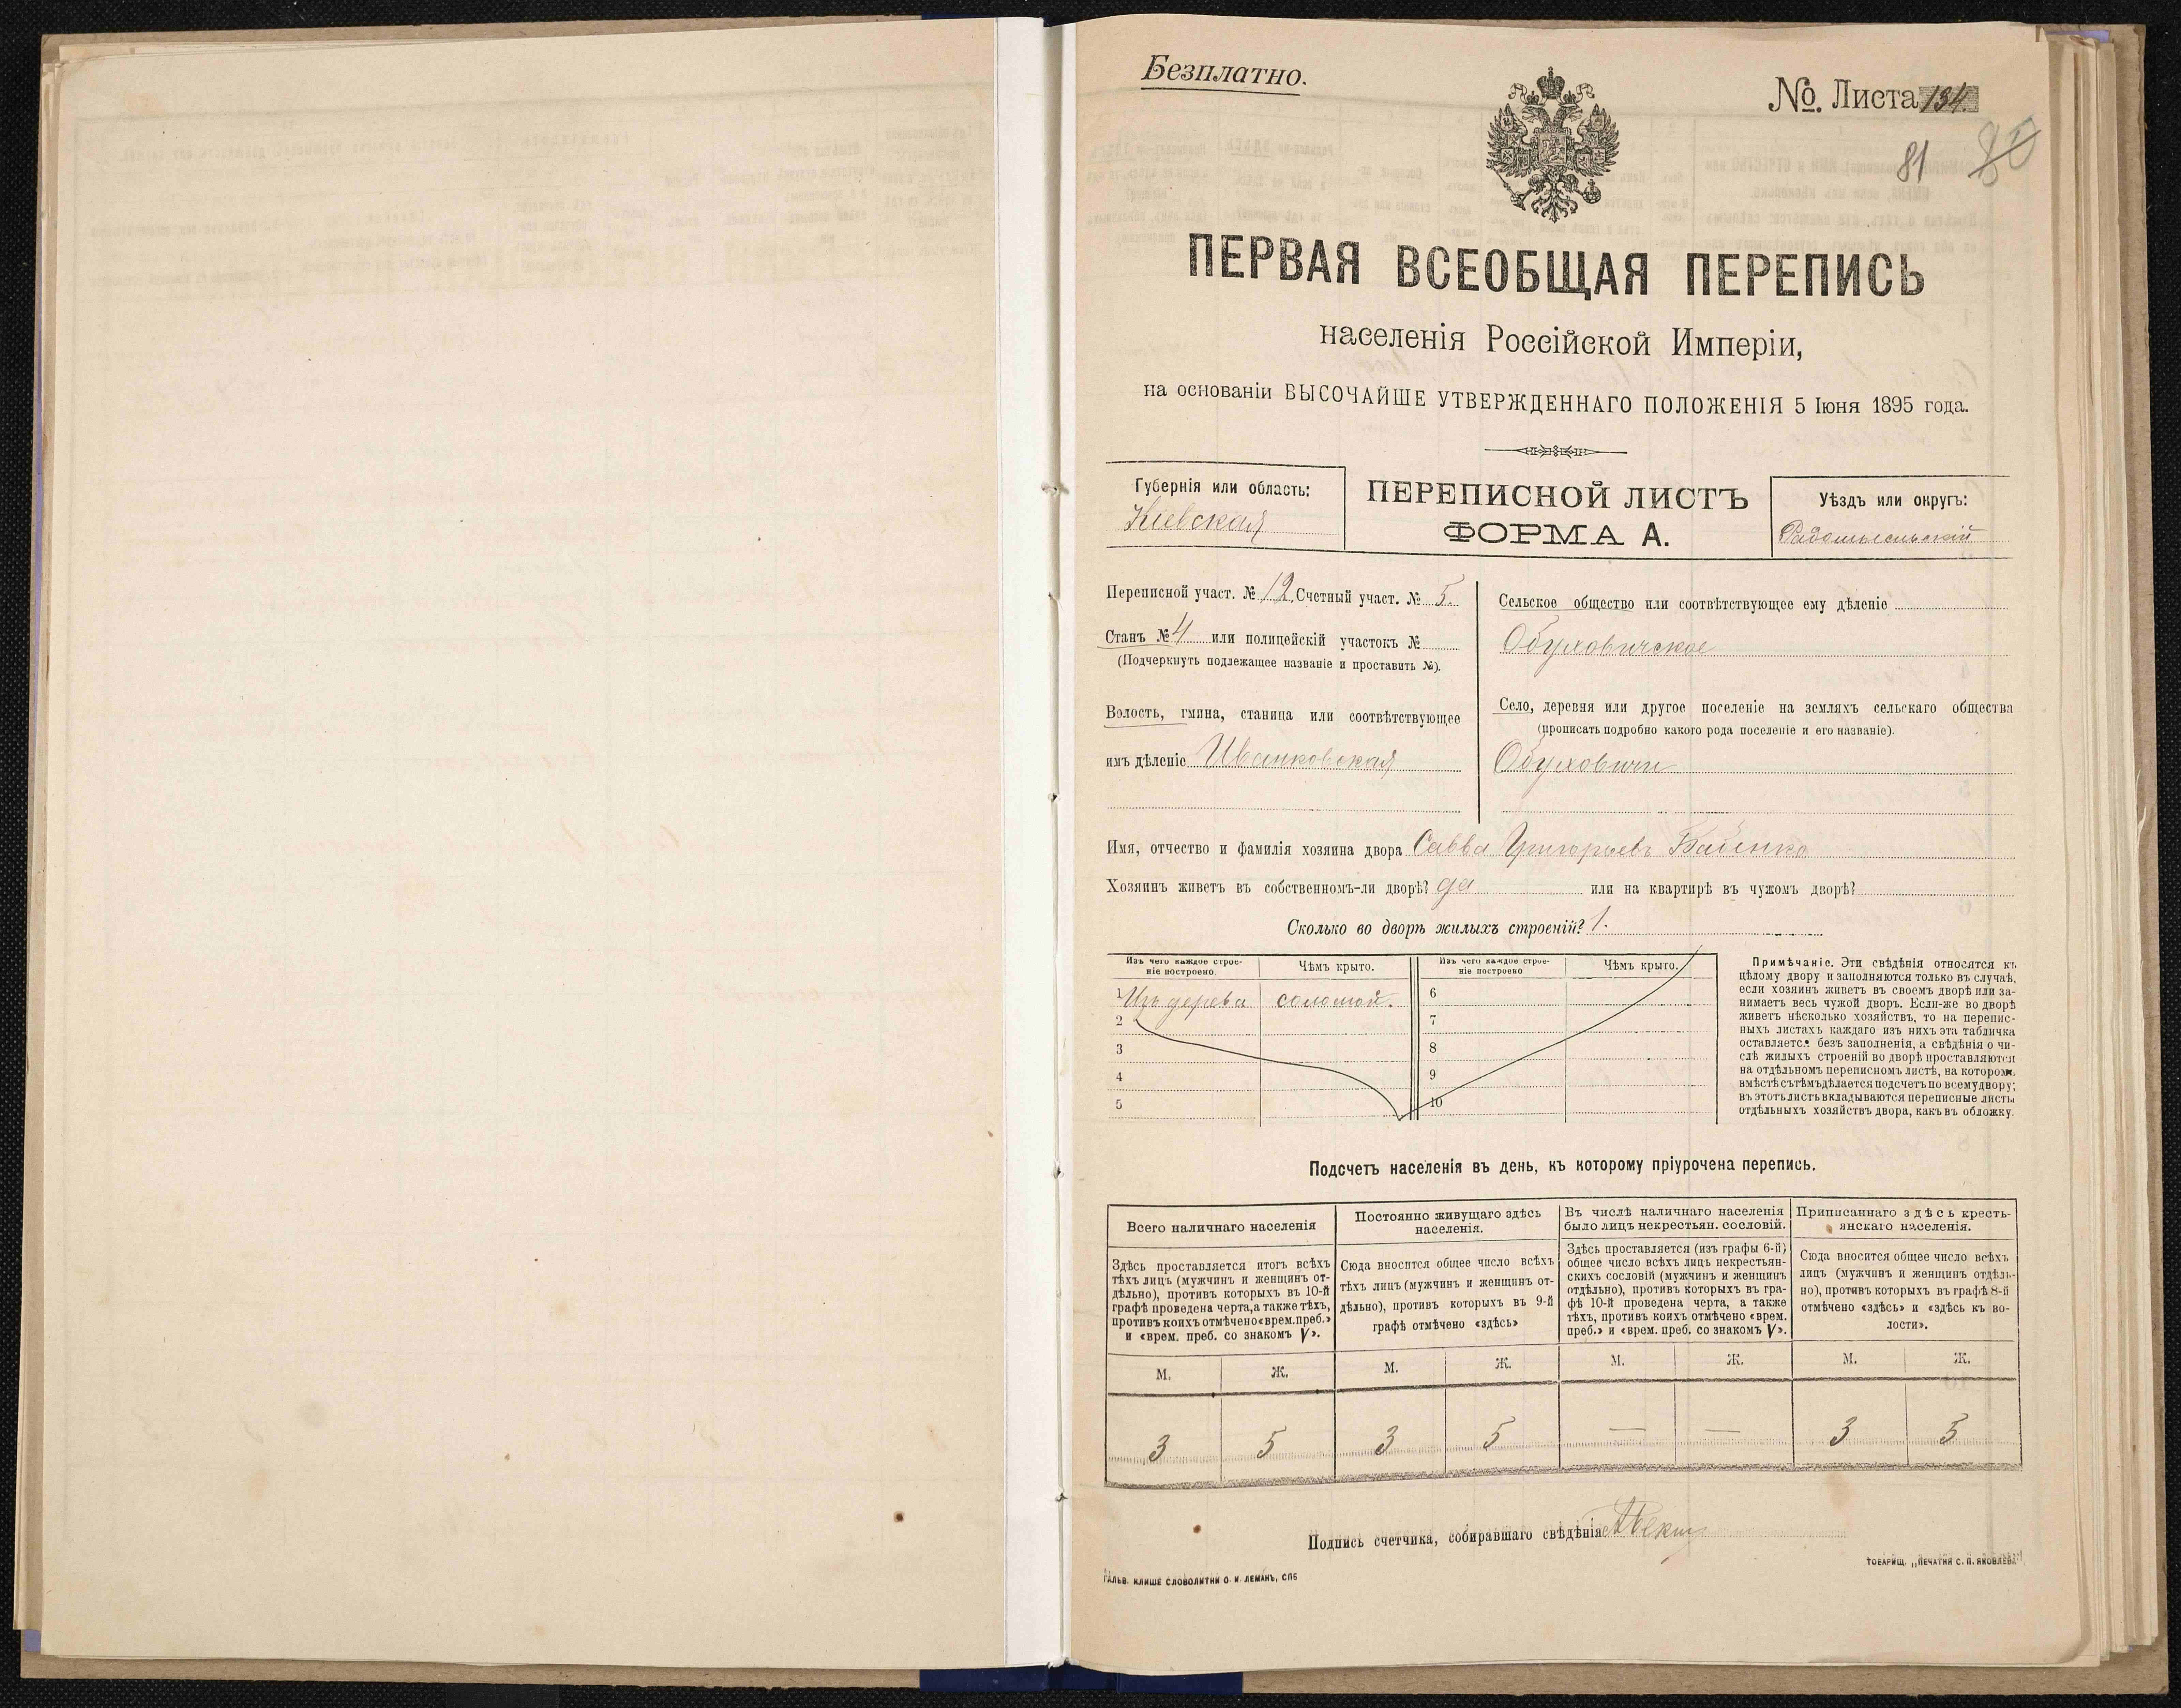 Безплатно.
№. Листа 134
81
ПЕРВАЯ ВСЕОБЩАЯ ПЕРЕПИСЬ
населенія Россійской Имперіи,
на основаніи ВЫСОЧАЙШЕ УТВЕРЖДЕННАГО ПОЛОЖЕНІЯ 5 Іюня 1895 года.
Губернія или область:
Кіевская
ПЕРЕПИСНОЙ ЛИСТЪ
ФОРМА А.
Уѣздъ или округъ:
Радомысльскій
Переписной участ. № 12. Счетный участ. № 5.
Станъ № 4 или полицейскій участокъ №
(Подчеркнуть подлежащее названіе и проставить №).
Волость, гмина, станица или соотвѣтствующее
имъ дѣленіе Иванковская
Сельское общество или соотвѣтствующее ему дѣленіе
Обуховичское
Село, деревня или другое поселеніе на земляхъ сельскаго общества
(прописать подробно какого рода поселеніе и его названіе).
Обуховичи
Имя, отчество и фамилія хозяина двора Савва Григорьевъ Бабенко
Хозяинъ живетъ въ собственномъ-ли дворѣ? да или на квартирѣ въ чужомъ дворѣ?
Сколько во дворѣ жилыхъ строеній? 1.
Изъ чего каждое строе-
ніе построено.
Чѣмъ крыто.
Изъ чего каждое строе-
ніе построено
Чѣмъ крыто.
1 Изъ дерева соломой. 6
2 7
3 8
4 9
5 10
Примѣчаніе. Эти свѣдѣнія относятся къ
цѣлому двору и заполняются только въ случаѣ,
если хозяинъ живетъ въ своемъ дворѣ или за-
нимаетъ весь чужой дворъ. Если-же во дворѣ
живетъ нѣсколько хозяйствъ, то на перепис-
ныхъ листахъ каждаго изъ нихъ эта табличка
оставляется безъ заполненія, а свѣдѣнія о чи-
слѣ жилыхъ строеній во дворѣ проставляются
на отдѣльномъ переписномъ листѣ, на которомъ
вмѣстѣ съ тѣмъ дѣлается подсчетъ по всему двору;
въ этотъ листъ вкладываются переписные листы
отдѣльныхъ хозяйствъ двора, какъ въ обложку.
Подсчетъ населенія въ день, къ которому пріурочена перепись.
Всего наличнаго населенія
Здѣсь проставляется итогъ всѣхъ
тѣхъ лицъ (мужчинъ и женщинъ от-
дѣльно), противъ которыхъ въ 10-й
графѣ проведена черта, а также тѣхъ,
противъ коихъ отмѣчено «врем. преб.»
и «врем. преб. со знакомъ V».
Постоянно живущаго здѣсь
населенія.
Сюда вносится общее число всѣхъ
тѣхъ лицъ (мужчинъ и женщинъ от-
дѣльно), противъ которыхъ въ 9-й
графѣ отмѣчено «здѣсь»
Въ числѣ наличнаго населенія
было лицъ некрестьян. сословій.
Здѣсь проставляется (изъ графы 6-й)
общее число всѣхъ лицъ некрестьян-
скихъ сословій (мужчинъ и женщинъ
отдѣльно), противъ которыхъ въ гра-
фѣ 10-й проведена черта, а также
тѣхъ, противъ коихъ отмѣчено «врем.
преб.» и «врем. преб. со знакомъ V».
Приписаннаго здѣсь кресть-
янскаго населенія.
Сюда вносится общее число всѣхъ
лицъ (мужчинъ и женщинъ отдѣль-
но), противъ которыхъ въ графѣ 8-й
отмѣчено «здѣсь» и «здѣсь къ во-
лости».
М. Ж. М. Ж. М. Ж. М. Ж.
3 5 3 5 — — 3 5
Подпись счетчика, собиравшаго свѣдѣнія
ГАЛЬВ. КЛИШЕ СЛОВОЛИТНИ О. И. ЛЕМАНЪ, СПБ
ТОВАРИЩ. „ПЕЧАТНЯ С. П. ЯКОВЛЕВА"